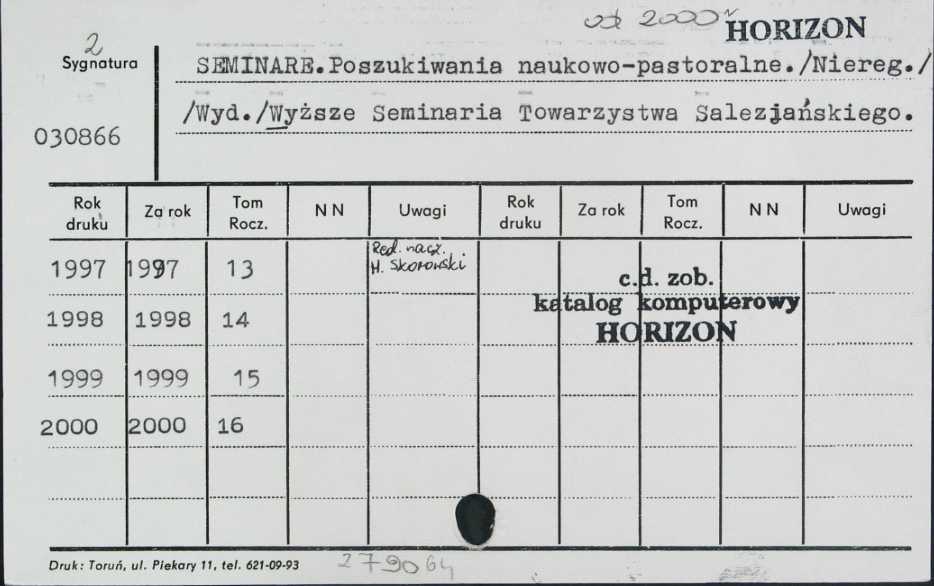 od 2000r
HORIZON
2
Sygnatura
SEMINARE.Poszukiwania naukowo-pastoralne./Niereg./
/Wyd./Wyższe Seminaria Towarzystwa Salezjańskiego.
030866
Rok druku Za rok Tom Rocz. NN Uwagi Rok druku Za rok Tom Rocz. NN Uwagi
1997 1997 13 Red. nacz. H. Skorowski
c.d. zob.
katalog komputerowy
HORIZON
1998 1998 14
1999 1999 15
2000 2000 16
Druk: Toruń, ul. Piekary 11, tel. 621-09-93
279064